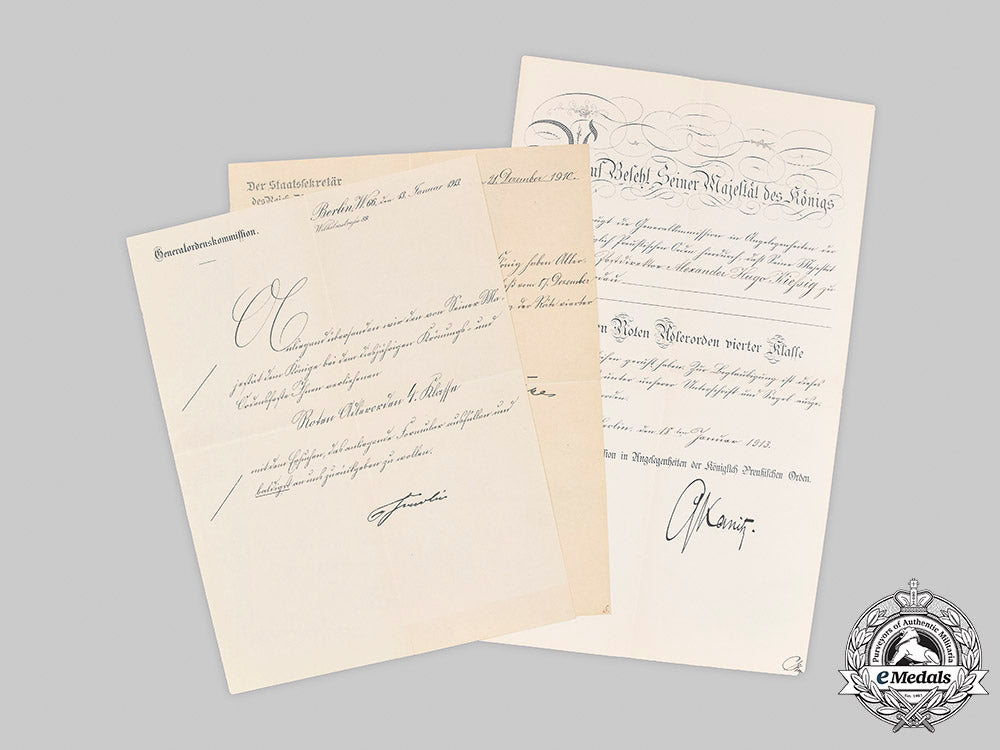 Generalordenskommission.
Berlin, W 66, den 13. Januar 1913.
Wilhelmstraße
Anliegend übersenden wir den von Seiner Ma-
jestät dem Könige bei dem diesjährigen Krönungs- und
Ordensfeste Ihnen verliehenen
Roten Adlerorden 4. Klasse
mit dem Ersuchen, das anliegende Formular ausfüllen und
baldigst an uns zurückgeben zu wollen.
Der Staatssekretär
des Reich
21. Dezember 1910.
König haben Aller-
vom 17. Dezember
der Räte vierter
Auf Befehl Seiner Majestät des Königs
die Generalkommission in Angelegenheiten der
Preußischen Orden hierdurch, daß Seine Majestät
Postdirektor Alexander Hugo Kießig zu
den Roten Adlerorden vierter Klasse
geruht haben. Zur Beglaubigung ist dieses
unter unserer Unterschrift und Siegel ausge-
worden.
Berlin, den 18ten Januar 1913.
in Angelegenheiten der Königlich Preußischen Orden.
Kanitz.
Purveyors of Authentic Militaria
eMedals